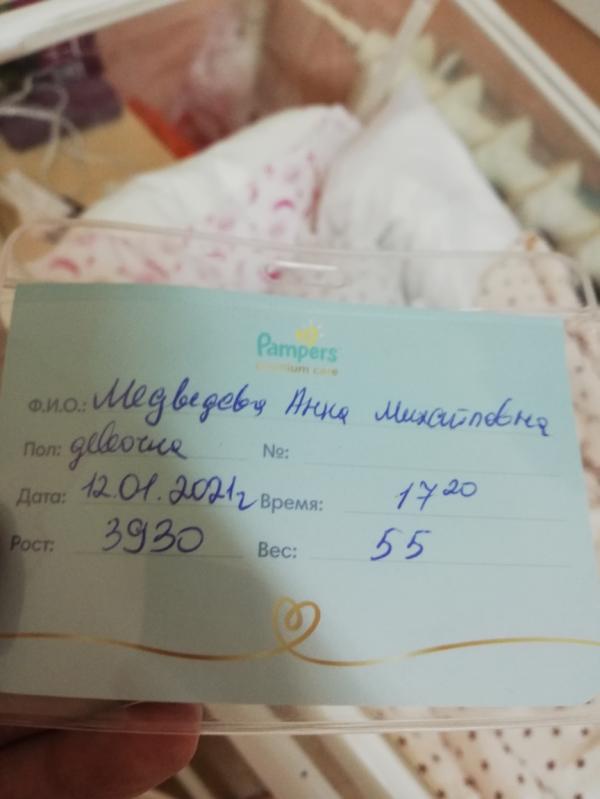 Pampers
premium care
Ф.И.О.: Медведева Анна Михайловна
Пол: девочка №:
Дата: 12.01.2021г Время: 17 20
Рост: 3930 Вес: 55